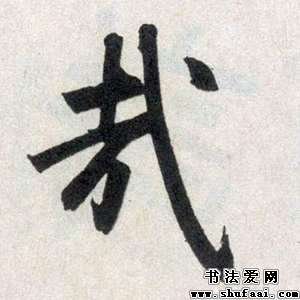 哉
书法爱网
www.shufaai.com